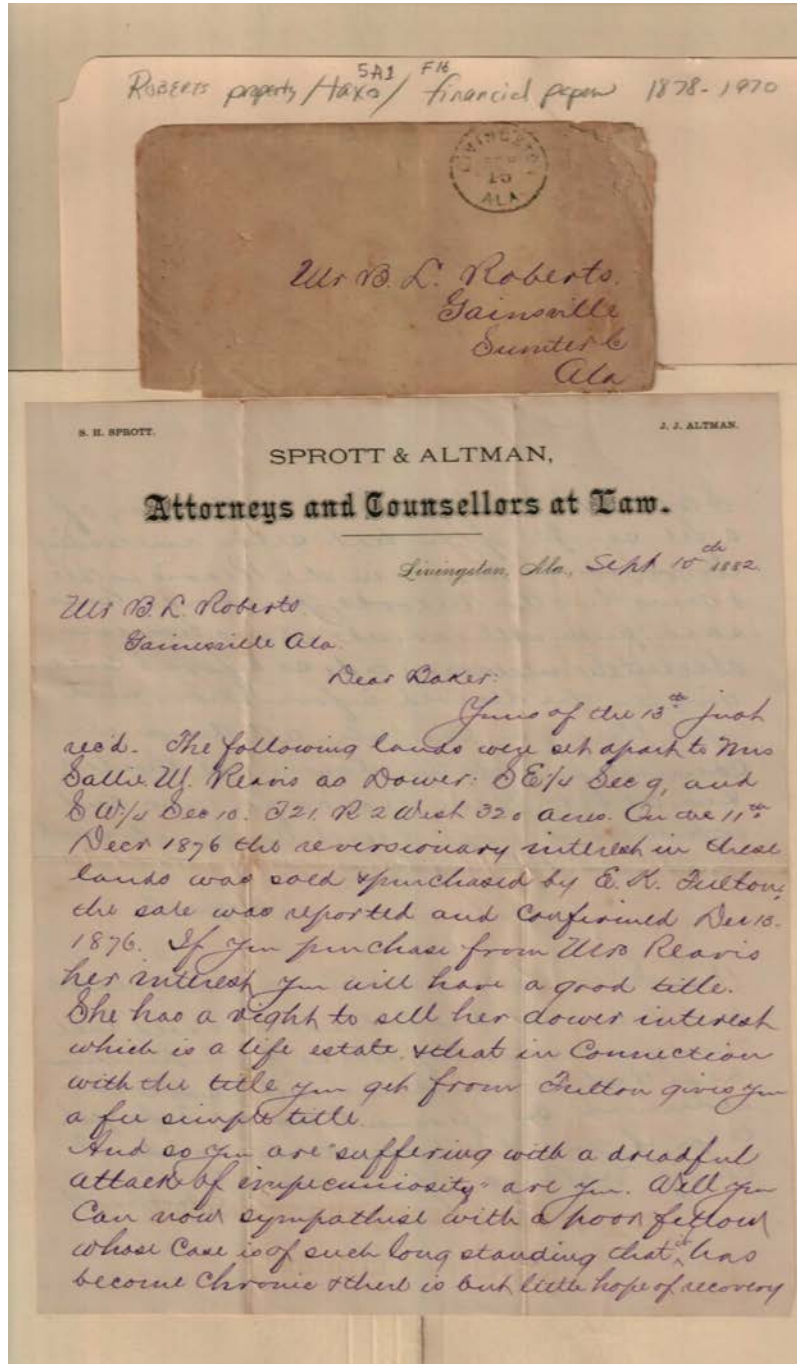 5A1 F16
ROBERTS property / taxes / financial papers 1878-1970
LIVINGSTON
15
ALA.
Mr B. L. Roberts.
Gainsville
Sumter C
Ala
S. H. SPROTT.
J. J. ALTMAN.
SPROTT & ALTMAN,
Attorneys and Counsellors at Law.
Livingston, Ala., Sept 15th 1882.
Mr B. L. Roberts.
Gainesville Ala.
Dear Baker:
Yours of the 13th just
rec'd. The following lands were set apart to Mrs
Sallie M. Reavis as Dower: S E 1/4 Sec 9, and
S W 1/4 Sec 10. T 21. R 2 West 320 acres. On the 11th
Decr 1876 the reversionary interest in these
lands was sold & purchased by E. K. Fulton,
the sale was reported and confirmed Dec 13.
1876. If you purchase from Mrs Reavis
her interest you will have a good title.
She has a right to sell her dower interest
which is a life estate & that in connection
with the title you get from Fulton gives you
a fee simple title.
And so you are "suffering with a dreadful
attack of impecuniosity" are you. Well you
can now sympathise with a poor fellow
whose case is of such long standing that it has
become chronic & there is but little hope of recovery